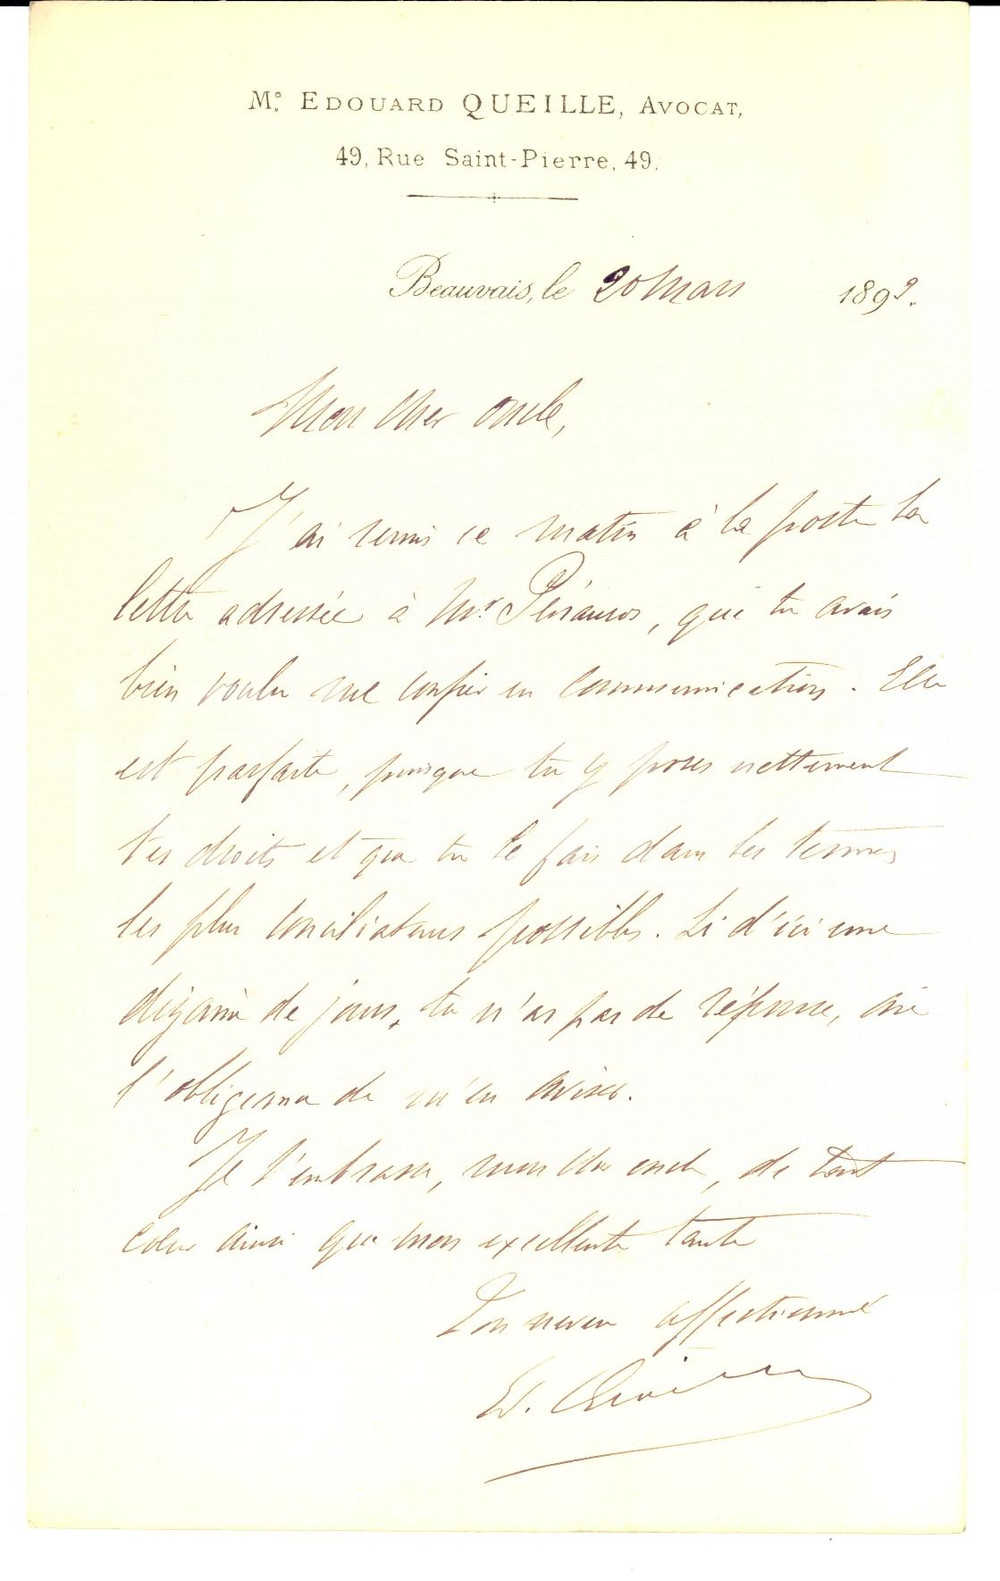 Me. EDOUARD QUEILLE, AVOCAT,
49, Rue Saint-Pierre, 49.
Beauvais, le 20 Mars 1899.
Mon cher oncle,
J'ai remis ce matin à la poste la
lettre adressée à Mr., que tu avais
bien voulu me confier en communication. Elle
est parfaite, puisque tu y poses nettement
tes droits et que tu le fais dans les termes
les plus conciliateurs possibles. Si d'ici une
dizaine de jours, tu n'as pas de réponse, aie
l'obligeance de m'en aviser.
Je t'embrasse, mon cher oncle, de tout
cœur ainsi que mon excellente tante
Ton neveu affectionné
Ed. Queille